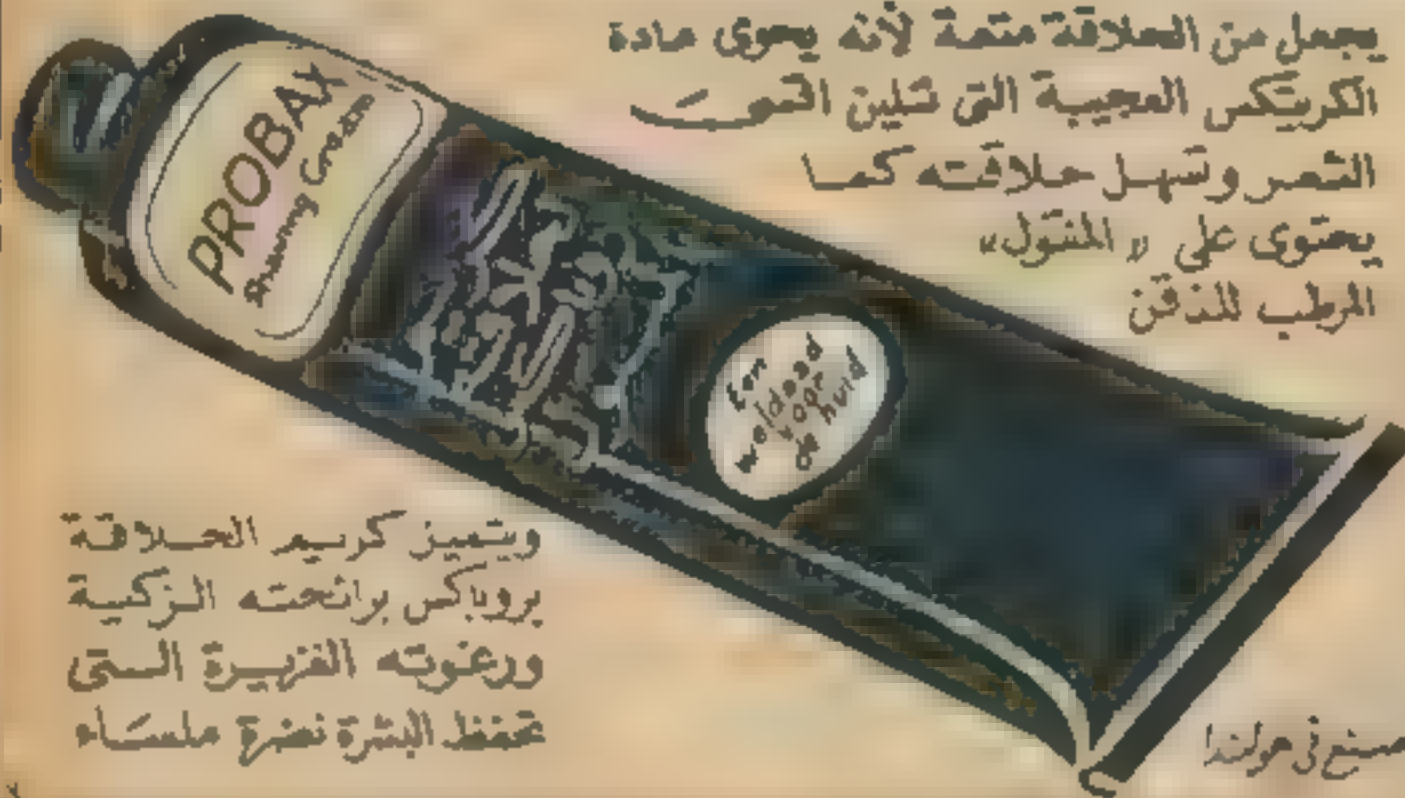 يجعل من الحلاقة متعة لأنه يحوى مادة
الكريتكس العجيبة التى تلين أقوى
الشعر وتسهل حلاقته كما
يحتوى على « المنتول »
المرطب للذقن
PROBAX
Shaving Cream
Een
weldaad
voor
de huid
ويتميز كريم الحلاقة
بروباكس برائحته الزكية
ورغوته الغزيرة التى
تحفظ البشرة نضرة ملساء
صنع فى هولندا